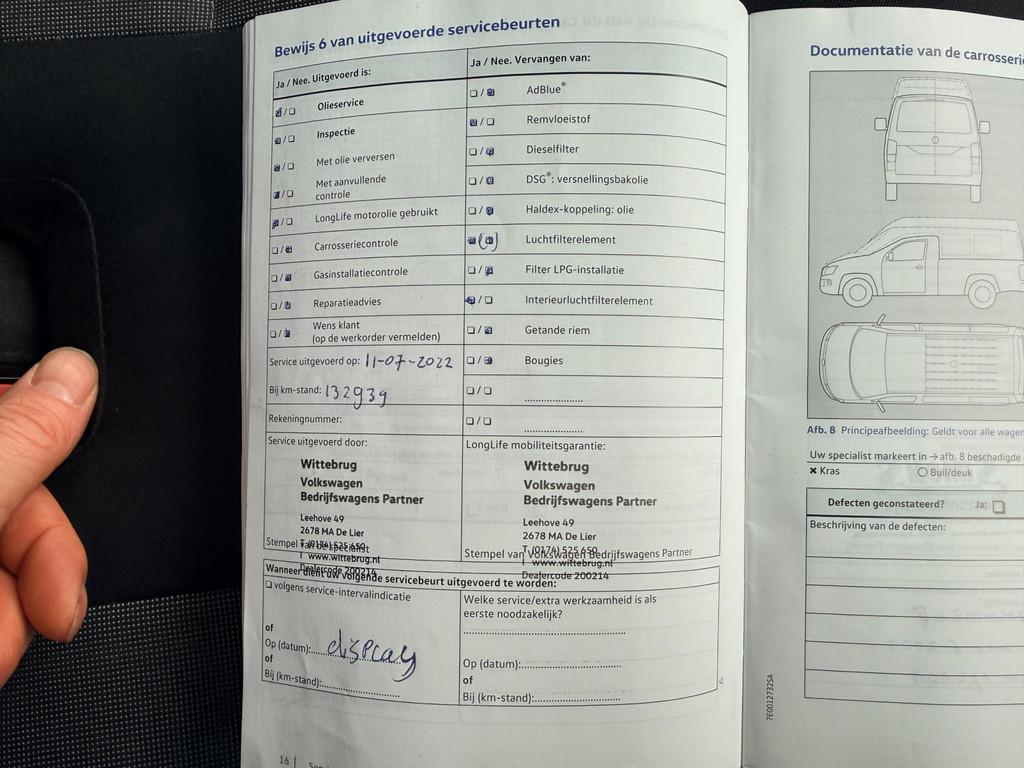 Bewijs 6 van uitgevoerde servicebeurten
Ja / Nee. Uitgevoerd is:
Olieservice
Inspectie
Met olie verversen
Met aanvullende
controle
LongLife motorolie gebruikt
Carrosseriecontrole
Gasinstallatiecontrole
Reparatieadvies
Wens klant
(op de werkorder vermelden)
Service uitgevoerd op: 11-07-2022
Bij km-stand: 132939
Rekeningnummer:
Service uitgevoerd door:
Wittebrug
Volkswagen
Bedrijfswagens Partner
Leehove 49
2678 MA De Lier
T (0174) 525 650
Stempel van de specialist
I www.wittebrug.nl
Dealercode 200214
Ja / Nee. Vervangen van:
AdBlue®
Remvloeistof
Dieselfilter
DSG®: versnellingsbakolie
Haldex-koppeling: olie
Luchtfilterelement
Filter LPG-installatie
Interieurluchtfilterelement
Getande riem
Bougies
LongLife mobiliteitsgarantie:
Wittebrug
Volkswagen
Bedrijfswagens Partner
Leehove 49
2678 MA De Lier
T (0174) 525 650
Stempel van Volkswagen Bedrijfswagens Partner
I www.wittebrug.nl
Dealercode 200214
Wanneer dient uw volgende servicebeurt uitgevoerd te worden:
volgens service-intervalindicatie
of
Op (datum): display
of
Bij (km-stand):
Welke service/extra werkzaamheid is als
eerste noodzakelijk?
Op (datum):
of
Bij (km-stand):
16
7E0012732SA
Documentatie van de carrosserie
Afb. 8 Principeafbeelding: Geldt voor alle wagen
Uw specialist markeert in → afb. 8 beschadigde
Kras
Buil/deuk
Defecten geconstateerd? Ja:
Beschrijving van de defecten: